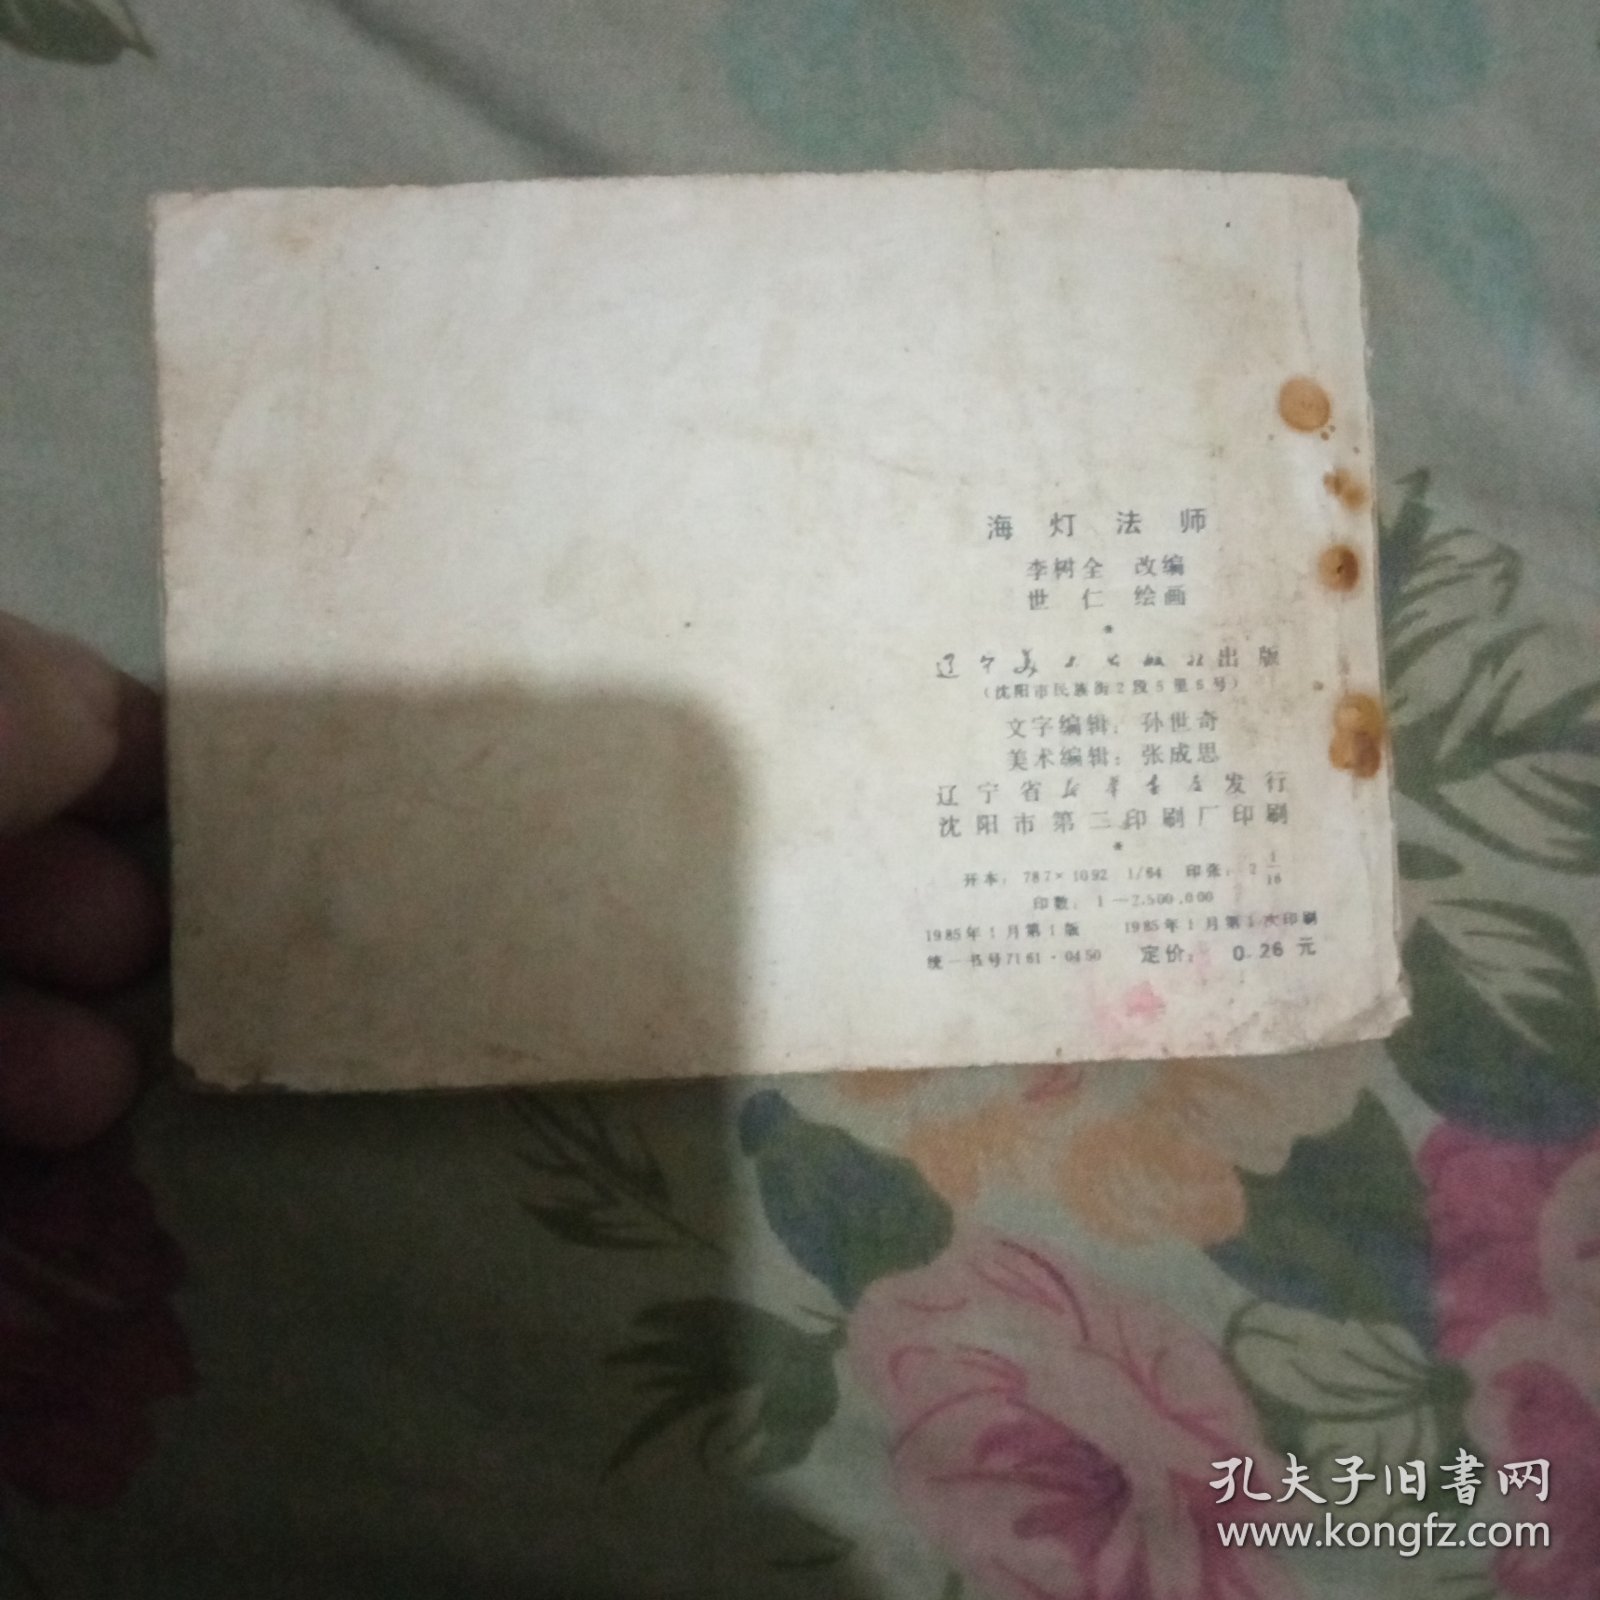 海灯法师
李树全 改编
世仁 绘画
*
辽宁美术出版社出版
(沈阳市民族街2段5里6号)
文字编辑：孙世奇
美术编辑：张成思
辽宁省新华书店发行
沈阳市第二印刷厂印刷
*
开本：787×1092 1/64 印张：2 1/16
印数：1—2,500,000
1985年1月第1版 1985年1月第1次印刷
统一书号7161·0450 定价：0.26元
孔夫子旧書网
www.kongfz.com